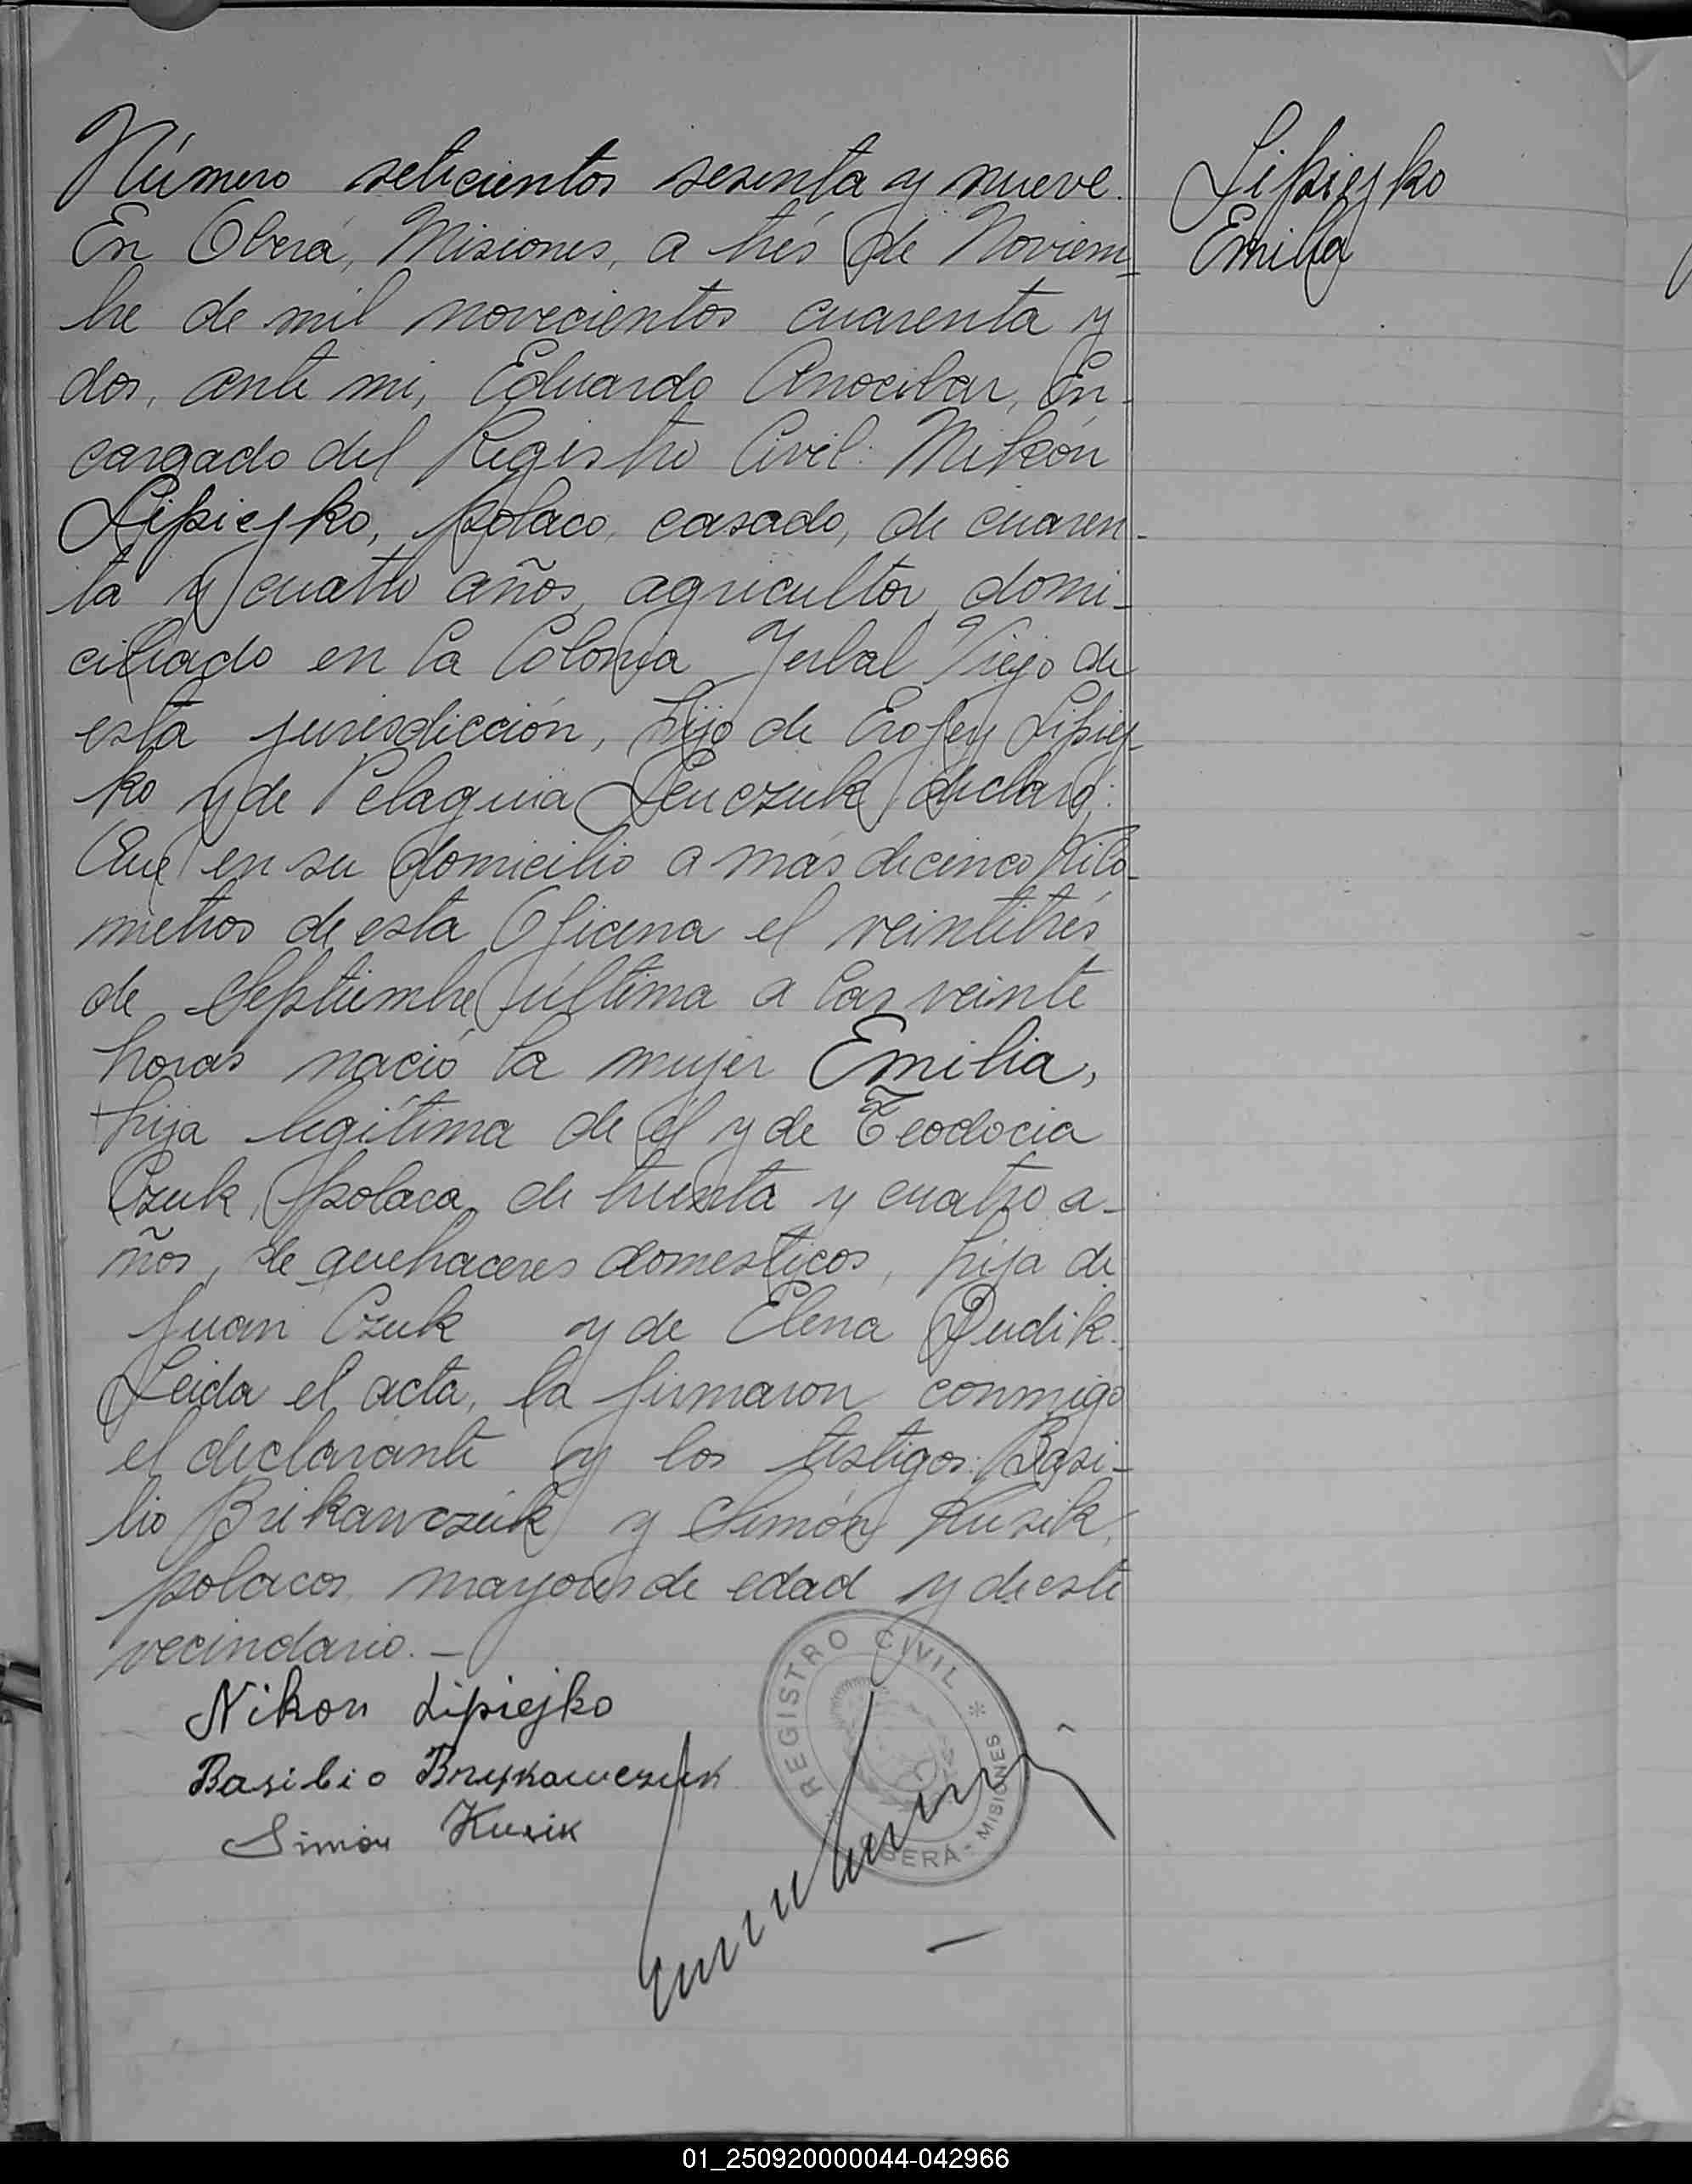 Número setecientos sesenta y nueve.
En Oberá, Misiones, a trés de Noviem-
bre de mil novecientos cuarenta y
dos, ante mi, Eduardo Anocibar, En-
cargado del Registro Civil: Mikón
Lipiejko, polaco, casado, de cuaren-
ta y cuatro años, agricultor, domi-
ciliado en la Colonia Yerbal Viejo de
esta jurisdicción, hijo de Erofey Lipiej-
ko y de Pelaguia Leuczuk, declaró:
Que en su domicilio a más de cinco kiló-
metros de esta Oficina el veintitrés
de Septiembre última a las veinte
horas nació la mujer Emilia,
hija legítima de él y de Teodocia
Czuk, polaca, de treinta y cuatro a-
ños, de quehaceres domesticos, hija de
Juan Czuk y de Elena Dudik.
Leida el acta, la firmaron conmigo
el declarante y los testigos: Basi-
lio Brikawczuk y Simón Kuzik,
polacos, mayores de edad y de este
vecindario.-
Nikon Lipiejko
Basilio Brykawczuk
Simón Kuzik
REGISTRO CIVIL
OBERÁ - MISIONES
Lipiejko
Emilia
01_250920000044-042966